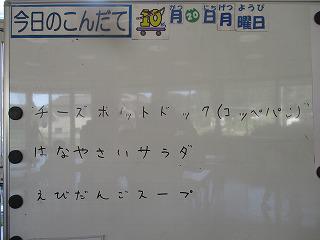 今日のこんだて 10月20日月曜日
チーズホットドック(コッペパン)
はなやさいサラダ
えびだんごスープ